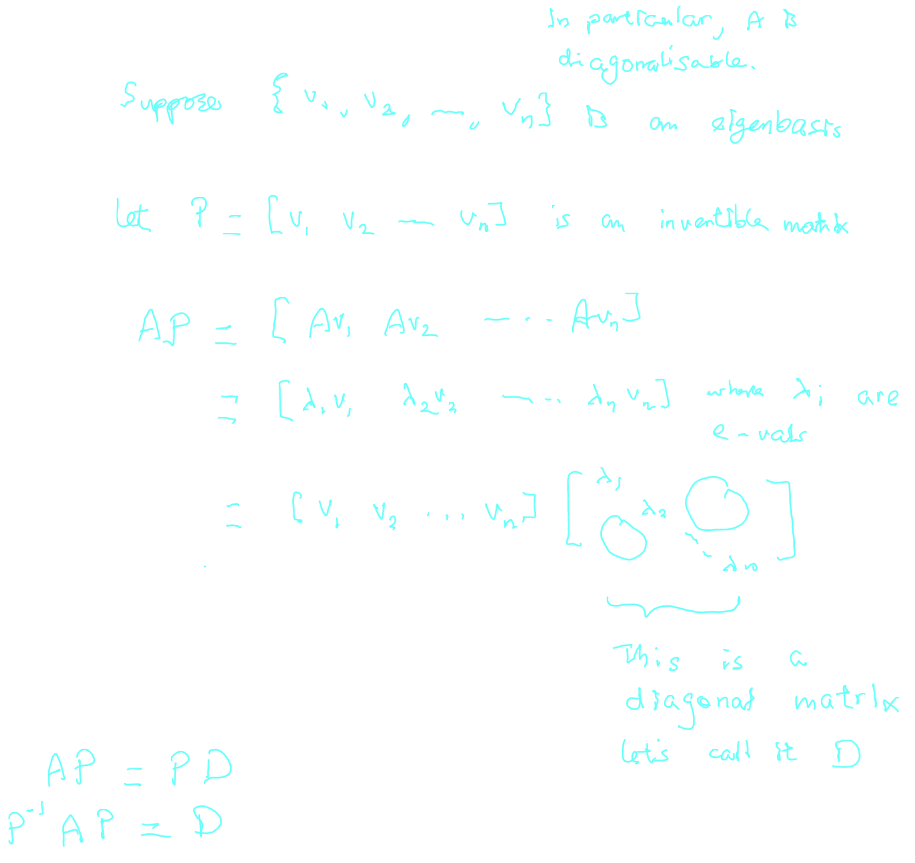 In particular, A is
diagonalisable.
Suppose { v₁, v₂, —, vₙ} is an eigenbasis
let P = [v₁ v₂ — vₙ] is an invertible matrix
AP = [ Av₁ Av₂ — ·· Avₙ]
= [λ₁v₁ λ₂v₂ — ·· λₙvₙ] where λi are
e-vals
= [v₁ v₂ ··· vₙ] [λ₁ λ₂ ⋱ λₙ]
This is a
diagonal matrix
let's call it D
AP = PD
P⁻¹AP = D